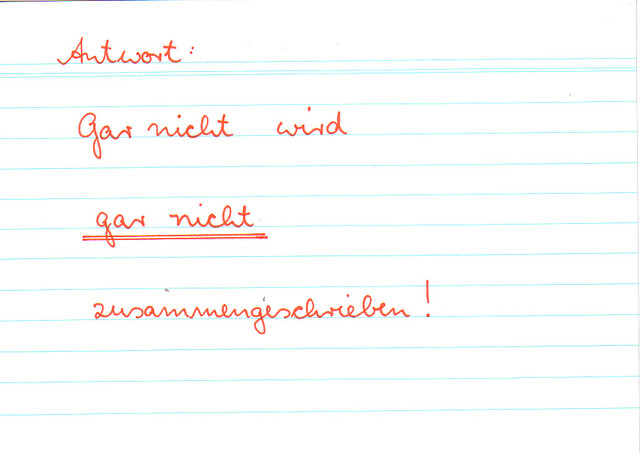 Antwort:
Gar nicht wird
gar nicht
zusammengeschrieben!